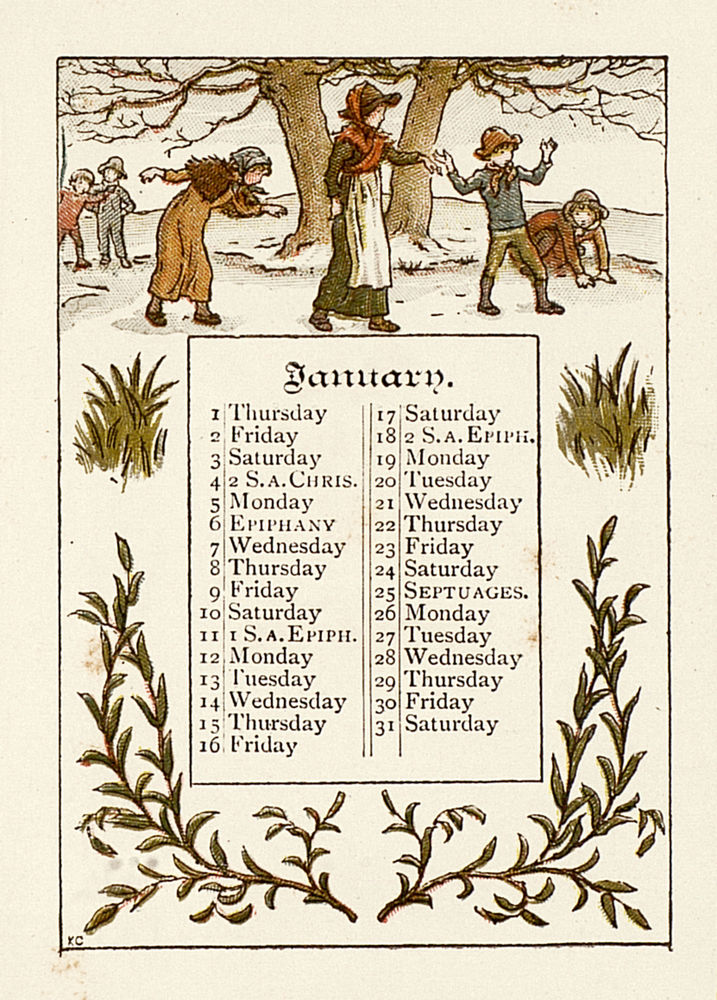 January.
1 Thursday
2 Friday
3 Saturday
4 2 S.A.CHRIS.
5 Monday
6 EPIPHANY
7 Wednesday
8 Thursday
9 Friday
10 Saturday
11 1 S.A.EPIPH.
12 Monday
13 Tuesday
14 Wednesday
15 Thursday
16 Friday
17 Saturday
18 2 S.A.EPIPH.
19 Monday
20 Tuesday
21 Wednesday
22 Thursday
23 Friday
24 Saturday
25 SEPTUAGES.
26 Monday
27 Tuesday
28 Wednesday
29 Thursday
30 Friday
31 Saturday
KG